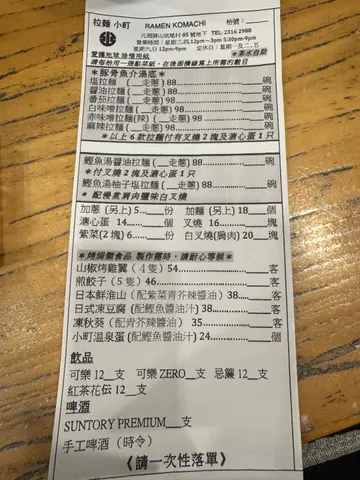 拉麵 小町 RAMEN KOMACHI 枱號：
元朗屏山坑尾村85號地下 TEL: 2316 2988
營業時間：星期三,四12pm~3pm 5:30pm-9pm
星期六,日 12pm-9pm 定休日：星期一及二,五
愛護地球 珍惜用紙 *茶水自助
請每枱用一張點菜紙，在後面橫線寫上所需的數目
*豚骨魚介湯底*
塩拉麵 (__走蔥) 88 碗
醬油拉麵 (__走蔥) 88 碗
番茄拉麵 (__走蔥) 98 碗
白味噌拉麵 (__走蔥) 98 碗
赤味噌拉麵(辣) (__走蔥) 98 碗
麻辣拉麵 (__走蔥) 98 碗
*以上6款拉麵付有叉燒2塊及溏心蛋1只
鰹魚湯醬油拉麵 (__走蔥) 88 碗
*付叉燒2塊及溏心蛋1只
鰹魚湯柚子塩拉麵(__走蔥) 98 碗
*配慢煮肩肉鹽味白叉燒
加蔥 (另上) 5 份 加麵 (另上) 18 個
溏心蛋 14 個 叉燒 16 塊
紫菜(2塊) 6 份 白叉燒(肩肉) 20 塊
*烤焗類食品 製作需時，請耐心等候*
山椒烤雞翼 (4隻) 54 客
煎餃子 (5隻) 46 客
日本鮮淮山 (配紫菜青芥辣醬油) 38 客
日式凍豆腐 (配鰹魚醬油汁) 38 客
凍秋葵 (配青芥辣醬油) 35 客
小町温泉蛋(配鰹魚醬油汁) 24 個
飲品
可樂 12__支 可樂ZERO__支 忌簾 12__支
紅茶花伝 12__支
啤酒
SUNTORY PREMIUM__支
手工啤酒 (時令)
《請一次性落單》